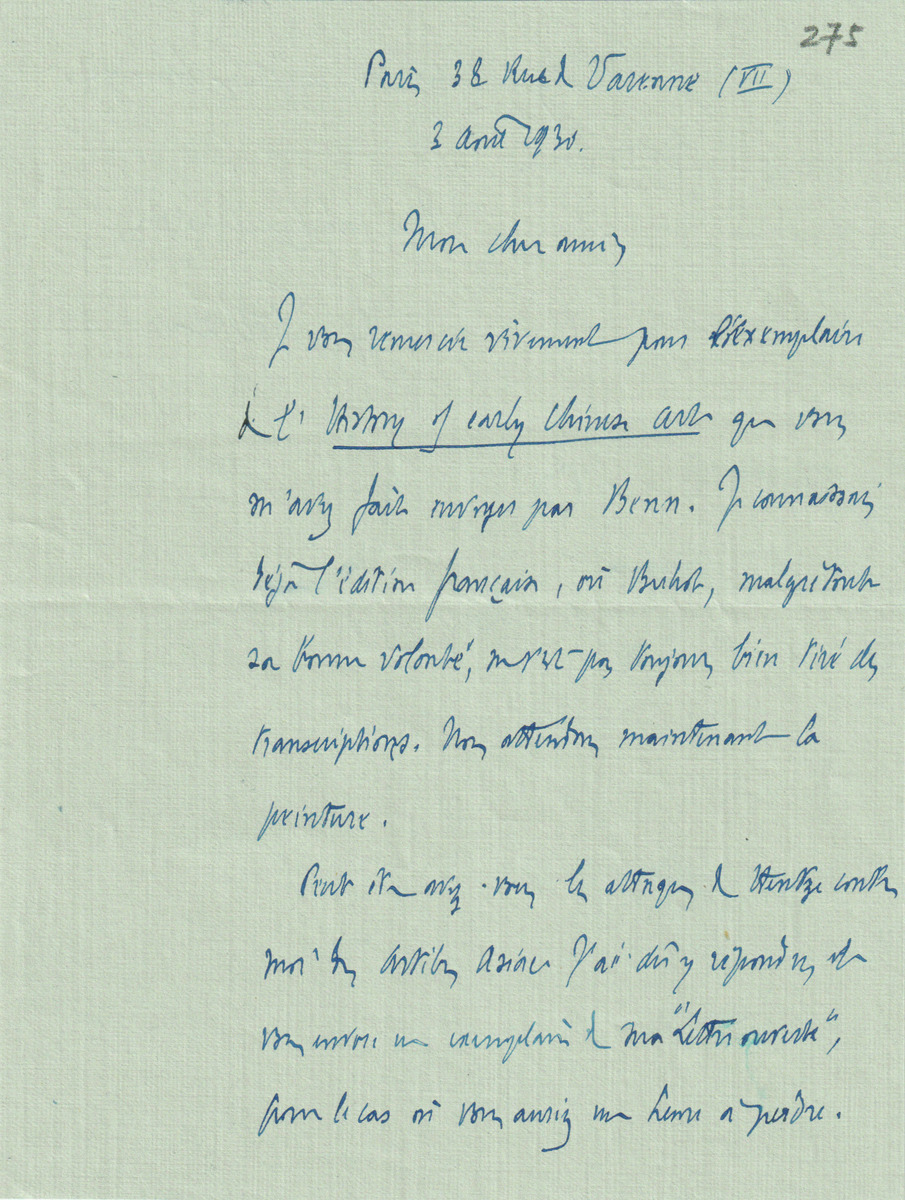 275
Paris 38 Rue de Varenne (VII)
3 Août 1930.
Mon cher ami,
Je vous remercie vivement pour l'exemplaire
de l' History of early Chinese art que vous
m'avez fait envoyer par Benn. Je connaissais
déjà l'édition française, où Buhot, malgré toute
sa bonne volonté, ne s'est pas toujours bien tiré des
transcriptions. Nous attendons maintenant la
peinture.
Peut être avez-vous les attaques de Hentze contre
moi ds Artibus Asiae. J'ai dû y répondre, et
vous envoie un exemplaire de ma "Lettre ouverte",
pour le cas où vous auriez une heure à perdre.